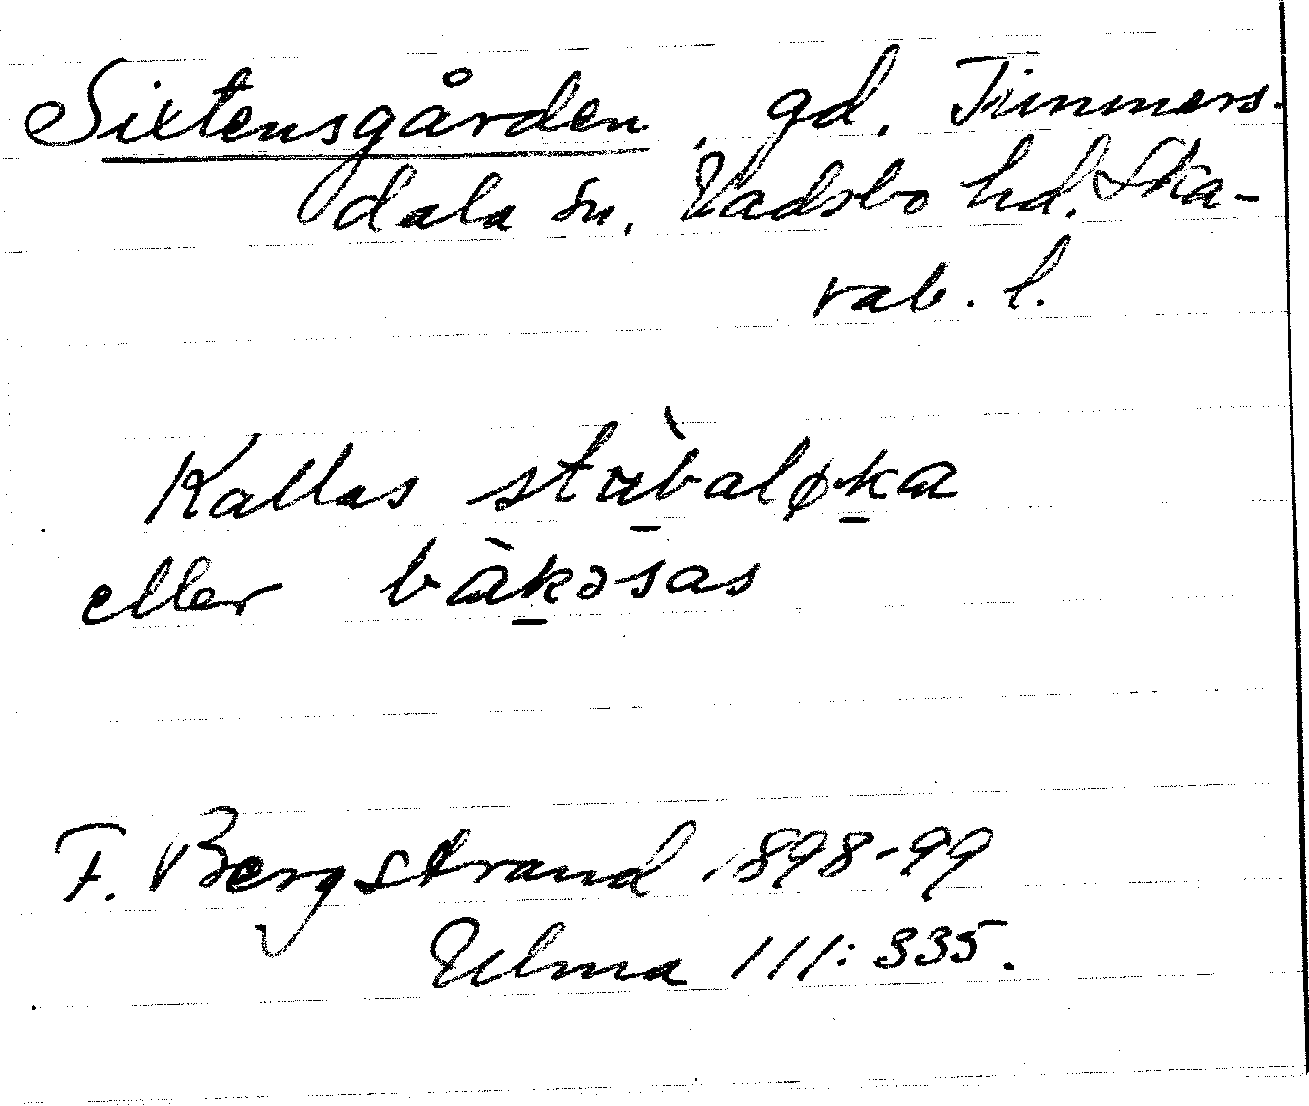 Sixtensgården, gd. Timmers-
dala sn, Vadsbo hd. Ska-
rab. l.
Kallas stʉ̀balø̱ka
eller bàḵəsas
F. Bergstrand 1898-99
Ulma 111:335.